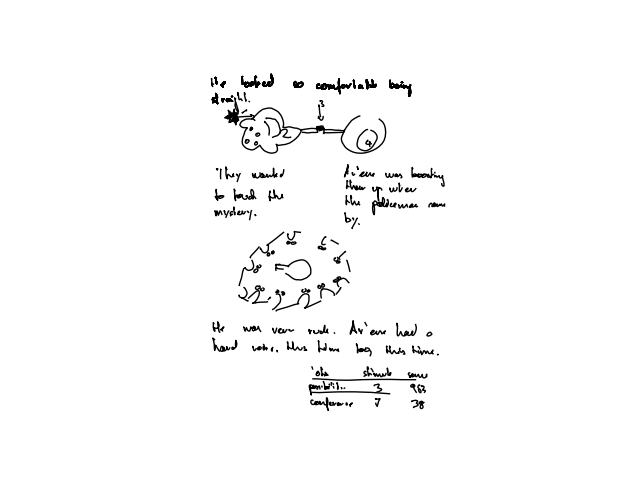 He looked so comfortable being
straight.
3
2
9
They wanted
to touch the
mystery.
was boosting
them up when
the policeman came
by.
He was very rude. had a
hard vote, this time this time.
stimuli same
3 953
conference 7 38